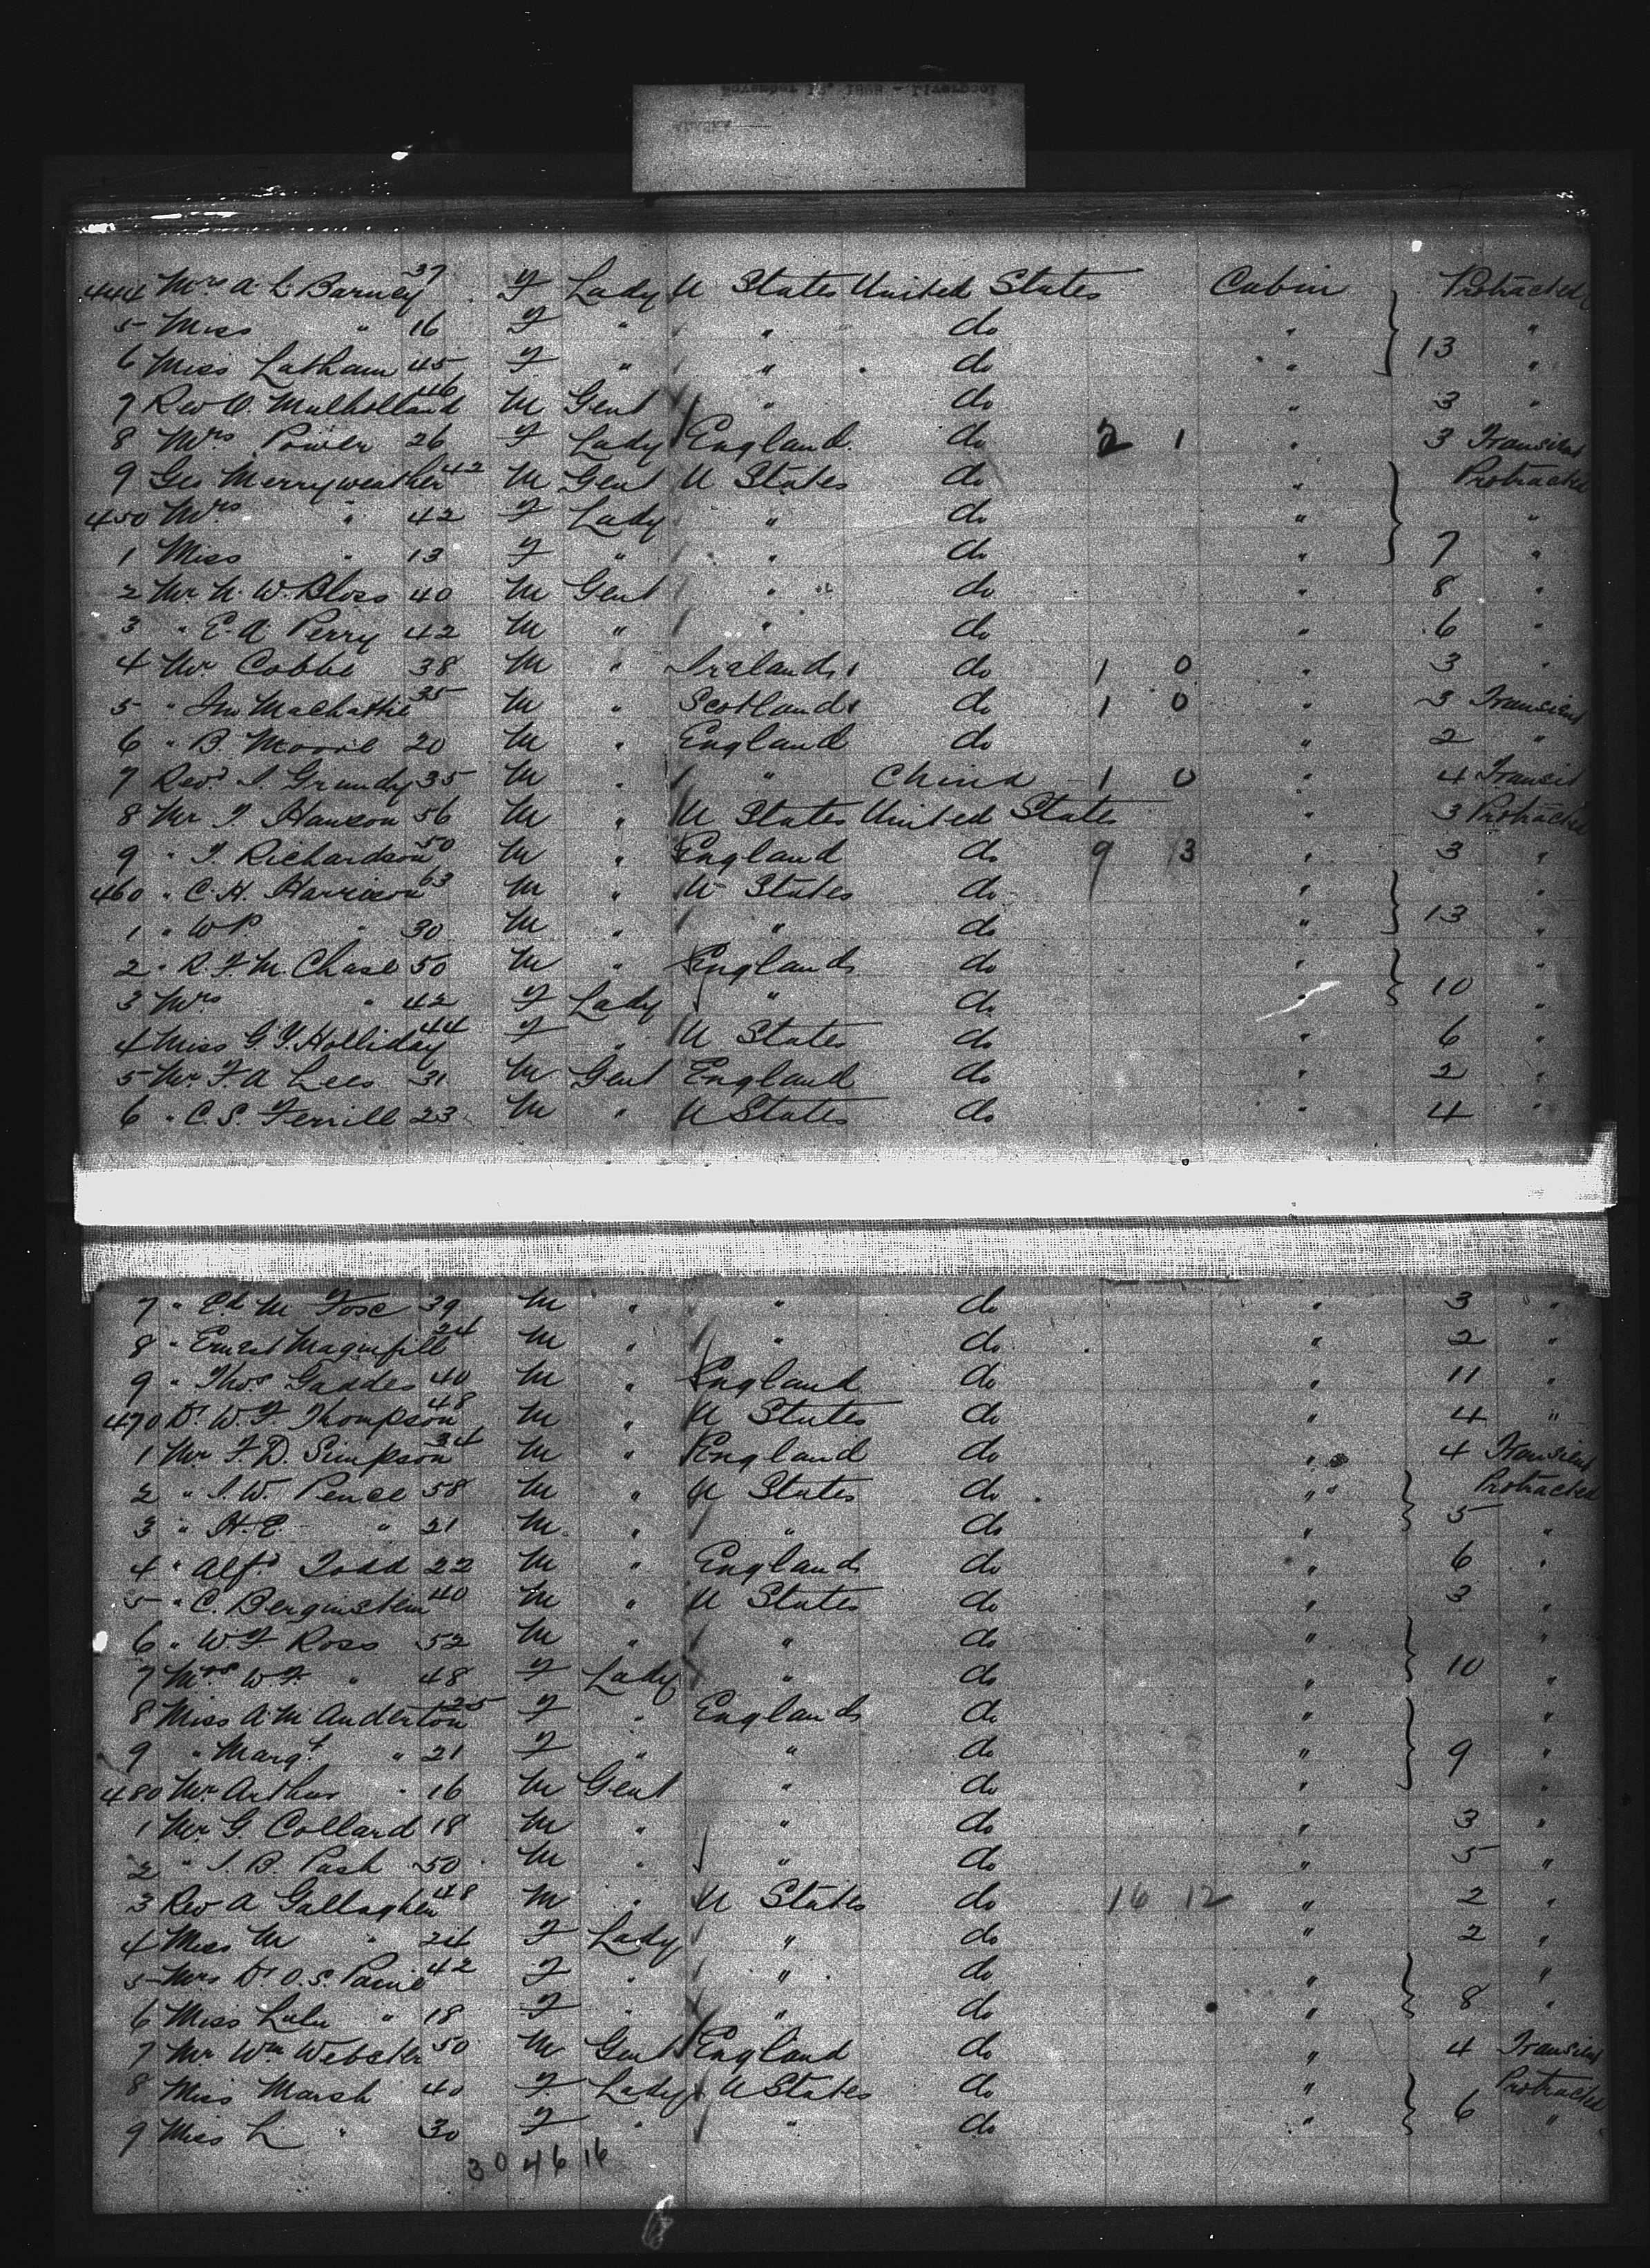 444 Mrs A. L. Barney 37 F Lady U States United States Cabin Protracted
5 Miss " 16 F " " do " "
6 Miss Latham 45 F " " do " 13 "
7 Rev O. Mulholland 46 M Gent " do " 3 "
8 Mrs Power 26 F Lady England do 2 1 " 3 Transient
9 Geo Merryweather 42 M Gent U States do " Protracted
450 Mrs " 42 F Lady " do " "
1 Miss " 13 F " " do " 7 "
2 Mr N. W. Bloss 40 M Gent " do " 8 "
3 " E. A Perry 42 M " " do " 6 "
4 Mr Cobbe 38 M " Ireland do 1 0 " 3 "
5 " Jno 35 M " Scotland do 1 0 " 3 Transient
6 " B. Moore 20 M " England do " 2 "
7 Revd J. Grundy 35 M " " China 1 0 " 4 Transit
8 Mr T. Hanson 56 M " U States United States " 3 Protracted
9 " T. Richardson 50 M " England do 9 13 " 3 "
460 " C. H. Harrison 63 M " U States do " "
1 " W P " 30 M " " do " 13 "
2 " R. F. M. Chase 50 M " England do " "
3 Mrs " 42 F Lady " do " 10 "
4 Miss G. Y. Holliday 44 F " U States do " 6 "
5 Mr F. A Lees 31 M Gent England do " 2 "
6 " C. S. Ferrill 23 M " U States do " 4 "
7 " Ed M Fose 39 M " " do " 3 "
8 " Ernest 24 M " " do " 2 "
9 " Thos Gaddes 40 M " England do " 11 "
470 Dr W. F Thompson 48 M " U States do " 4 "
1 Mr F. D. Simpson 34 M " England do " 4 Transient
2 " J. W. Pence 58 M " U States do " Protracted
3 " H. E. " 21 M " " do " 5 "
4 " Alfd Todd 22 M " England do " 6 "
5 " C. Berginstein 40 M " U States do " 3 "
6 " W F Ross 52 M " " do " "
7 Mrs W F. " 48 F Lady " do " 10 "
8 Miss A. M. Anderton 25 F " England do " "
9 " Margt " 21 F " " do " 9 "
480 Mr Arthur " 16 M Gent " do " "
1 Mr G. Collard 18 M " " do " 3 "
2 " J. B. Pash 50 M " " do " 5 "
3 Rev A Gallagher 48 M " U States do 16 12 " 2 "
4 Miss M " 24 F Lady " do " 2 "
5 Mrs Dr O. S. Paine 42 F " " do " "
6 Miss Lulu " 18 F " " do " 8 "
7 Mr Wm Webster 50 M Gent England do " 4 Transient
8 Miss Marsh 40 F Lady U States do " Protracted
9 Miss L " 30 F " " do " 6 "
30 46 16